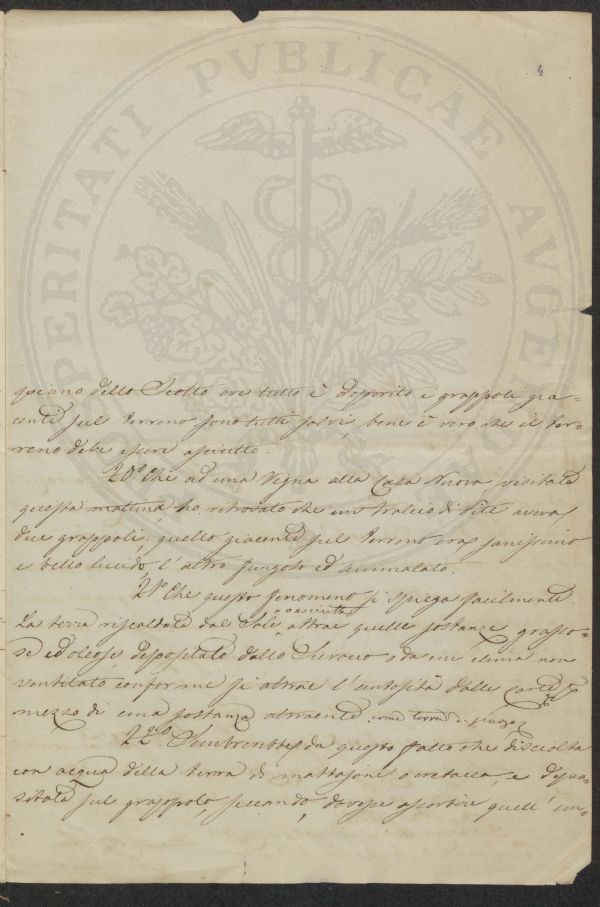 4
piano dello Scotto ove tutto è deposito i grappoli gia-
centi sul terreno sono tutti salvi, bene è vero che il ter-
reno debe essere asciutto.
20° Che ad una Vigna alla Casa Nuova visitata
questa mattina ho ritrovato che un tralcio di Vite aveva
due grappoli, quello giacente sul terreno era sanissimo
e bello lucido, l'altro fungoso ed ammalato.
21° Che questo fenomeno si spiega facilmente.
La terra riscaldata dal Sole, e asciutta attrae quelle sostanze grasso-
se ed oleose depositate dallo Scirocco o da un clima non
ventilato conforme si attrae l'untosità dalle carte
mezzo di una sostanza attraente come terra di purgo
22° Sembrerebbe da questo fatto che disciolta
con acqua della terra di mattajone o cretacea, e depo-
sitata sul grappolo, seccando, dovesse assorbire quell'un-
PROSPERITATI PVBLICAE AVGE